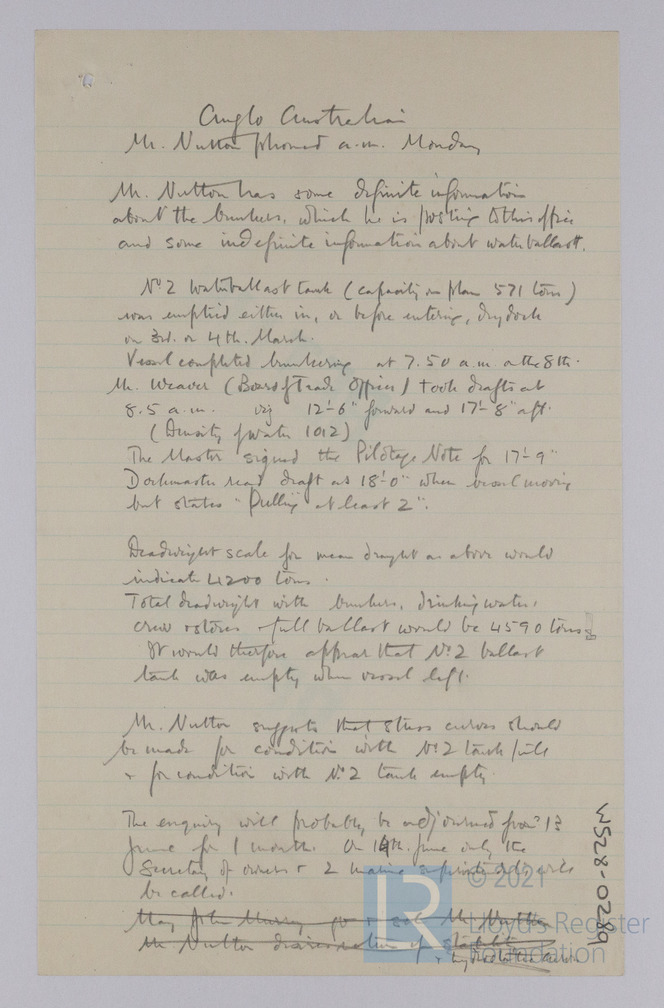 Anglo Australian
Mr. Nutton phoned a.m. Monday
Mr. Nutton has some definite information
about the bunkers, which he is posting to this office
and some indefinite information about water ballast.
No 2 Waterballast tank (capacity on plan 571 tons)
was emptied either in, or before entering, drydock
on 3rd. or 4th. March.
Vessel completed bunkering at 7.50 a.m. on the 8th.
Mr. Weaver (Board of Trade Officer) took drafts at
8.5 a.m. viz 12'-6" forward and 17'-8" aft.
(Density of water 1012)
The Master signed the Pilotage Note for 17'-9"
Dockmaster read draft as 18'-0" when vessel moving
but states "pulling at least 2".
Deadweight scale for mean draught as above would
indicate 4200 tons.
Total deadweight with bunkers, drinking water,
crew + stores + full ballast would be 4590 tons.
It would therefore appear that No 2 ballast
tank was empty when vessel left.
Mr. Nutton suggests that stress curves should
be made for condition with No 2 tank full
+ for condition with No 2 tank empty.
The enquiry will probably be adjourned from 13
June for 1 month. On 14th. June only the
Secretary of owners + 2 marine superintendents will
be called.
May John Murray go + see Mr Nutton
Mr Nutton desires of stability
+ hydrostatic curves
W528-0289
© 2021
LR
Lloyd's Register
Foundation